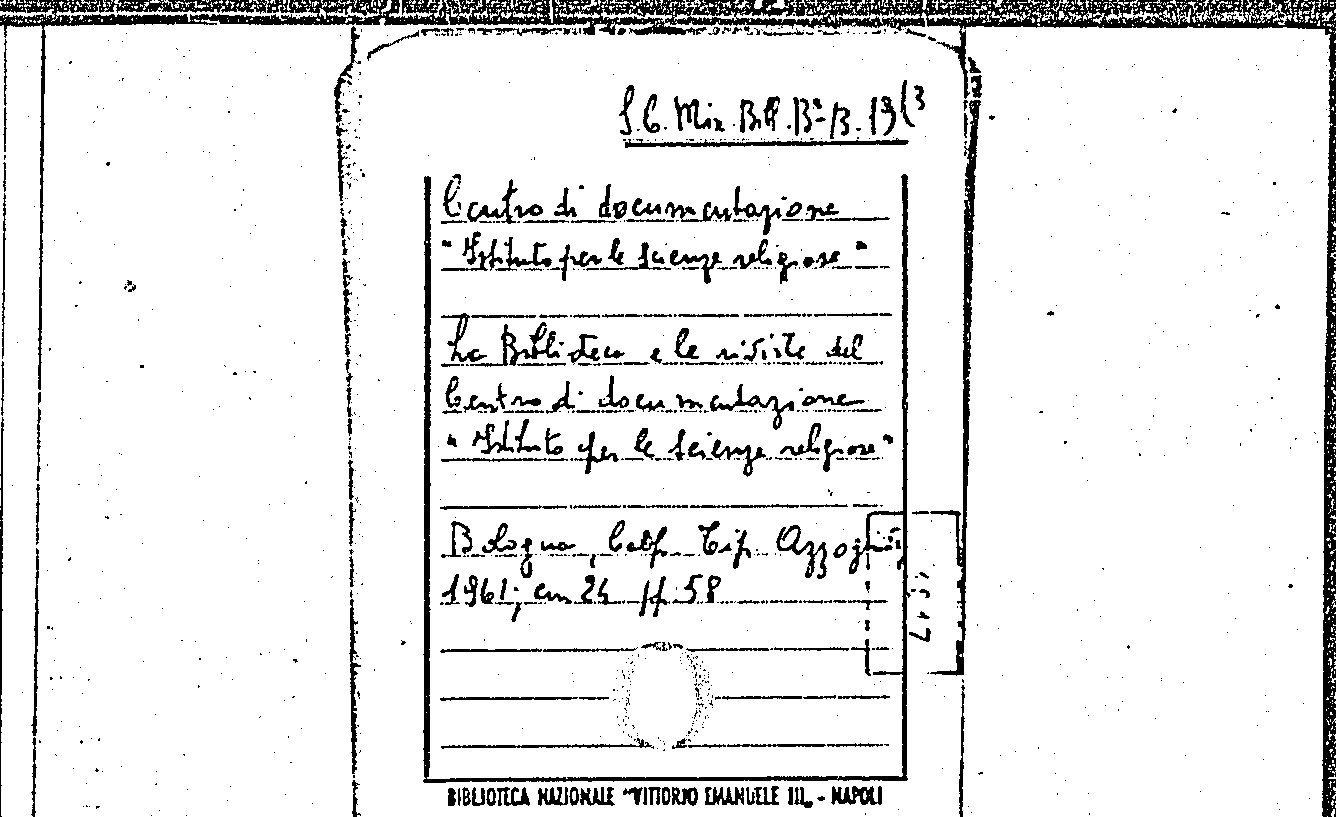 S.C. Misc. Bibl. B² B. 19(3
Centro di documentazione
"Istituto per le scienze religiose"
La Biblioteca e le riviste del
Centro di documentazione
"Istituto per le scienze religiose"
Bologna, Coop. Tip. Azzoguidi,
1961; cm 24 pp. 58
BIBLIOTECA NAZIONALE "VITTORIO EMANUELE III„ - NAPOLI